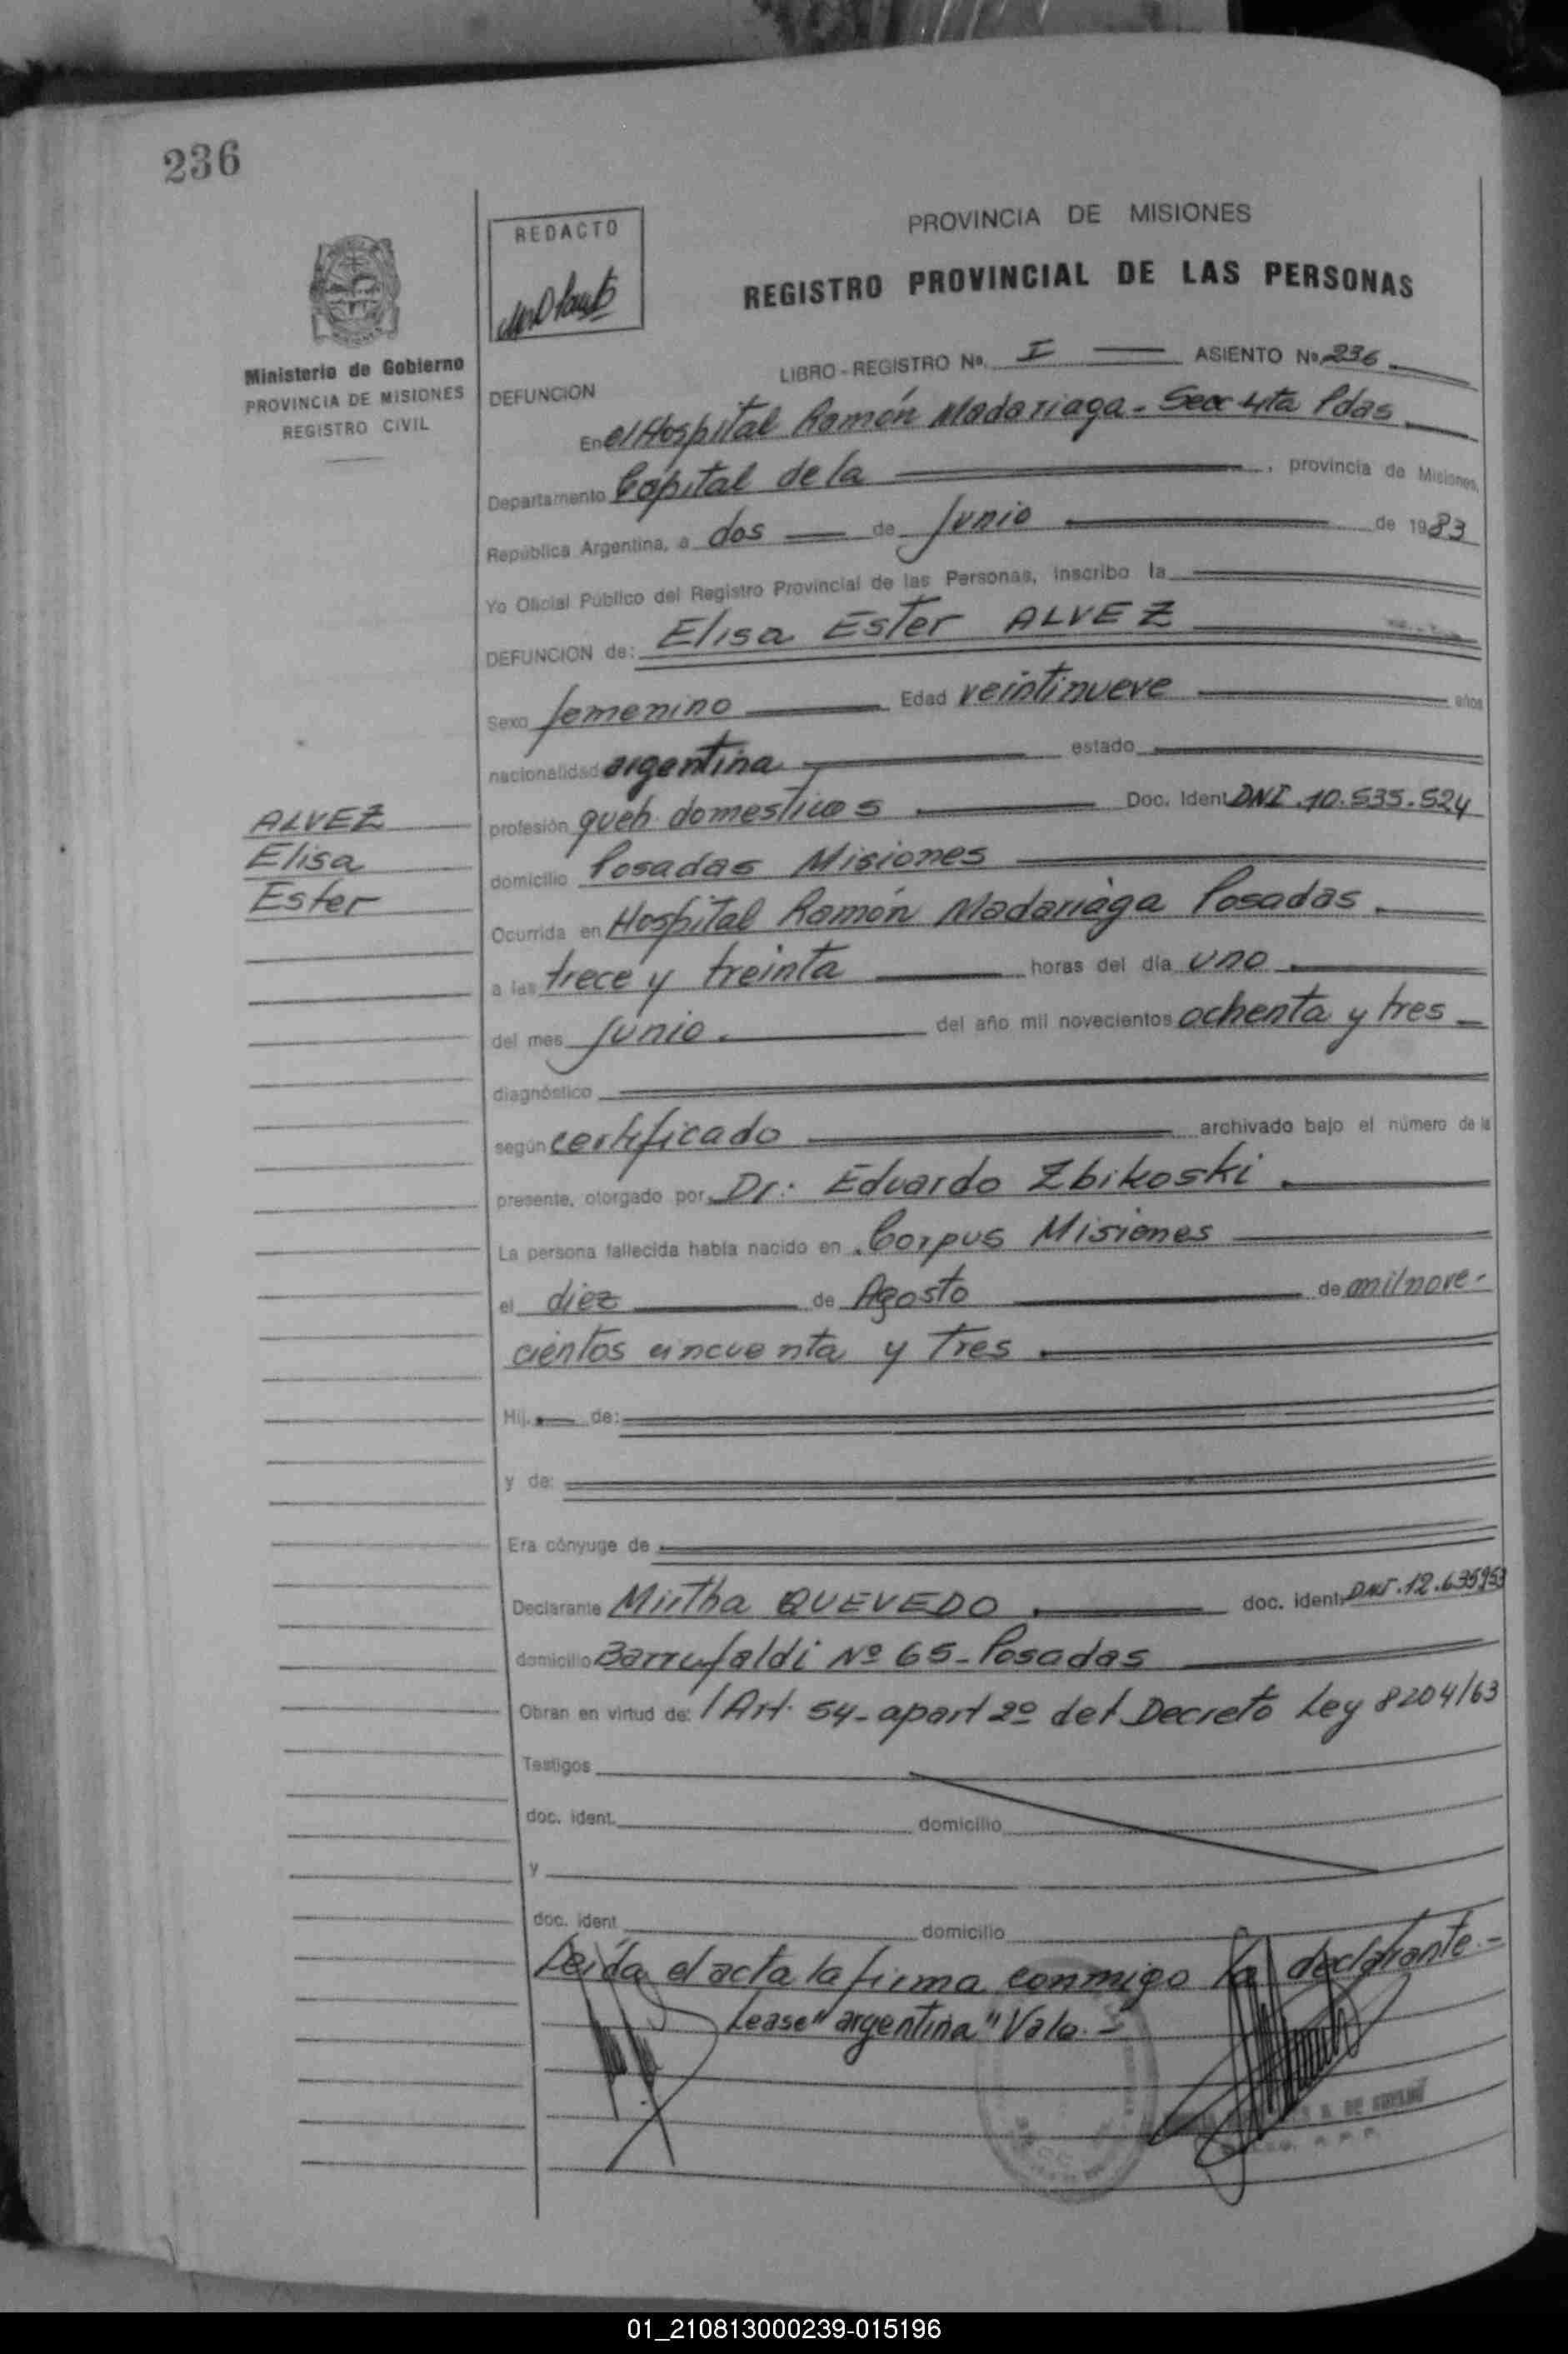 236
REDACTO
PROVINCIA DE MISIONES
REGISTRO PROVINCIAL DE LAS PERSONAS
Ministerio de Gobierno
PROVINCIA DE MISIONES
REGISTRO CIVIL
LIBRO - REGISTRO Nº. I ASIENTO Nº 236
DEFUNCION
En el Hospital Ramón Madariaga - Secc 4ta Pdas
Departamento Capital de la , provincia de Misiones,
República Argentina, a dos de Junio de 1983
Yo Oficial Público del Registro Provincial de las Personas, inscribo la
DEFUNCION de: Elisa Ester ALVEZ
Sexo femenino Edad veintinueve años
nacionalidad argentina estado
profesión queh. domesticos Doc. Ident DNI. 10.535.524
ALVEZ
Elisa
Ester
domicilio Posadas Misiones
Ocurrida en Hospital Ramón Madariaga Posadas.
a las trece y treinta horas del día uno.
del mes Junio. del año mil novecientos ochenta y tres
diagnóstico
según certificado archivado bajo el número de la
presente, otorgado por Dr: Eduardo Zbikoski.
La persona fallecida había nacido en Corpus Misiones
el diez de Agosto de mil nove-
cientos cincuenta y tres.
Hij. de:
y de:
Era cónyuge de
Declarante Mirtha QUEVEDO. doc. ident. DNI. 12.635953
domicilio Barrufaldi Nº 65 - Posadas
Obran en virtud de: / Art. 54 - apart 2º del Decreto Ley 8204/63
Testigos
doc. ident. domicilio
y
doc. ident domicilio
Leida el acta la firma conmigo la declarante.-
Lease "argentina" Vale.-
01_210813000239-015196